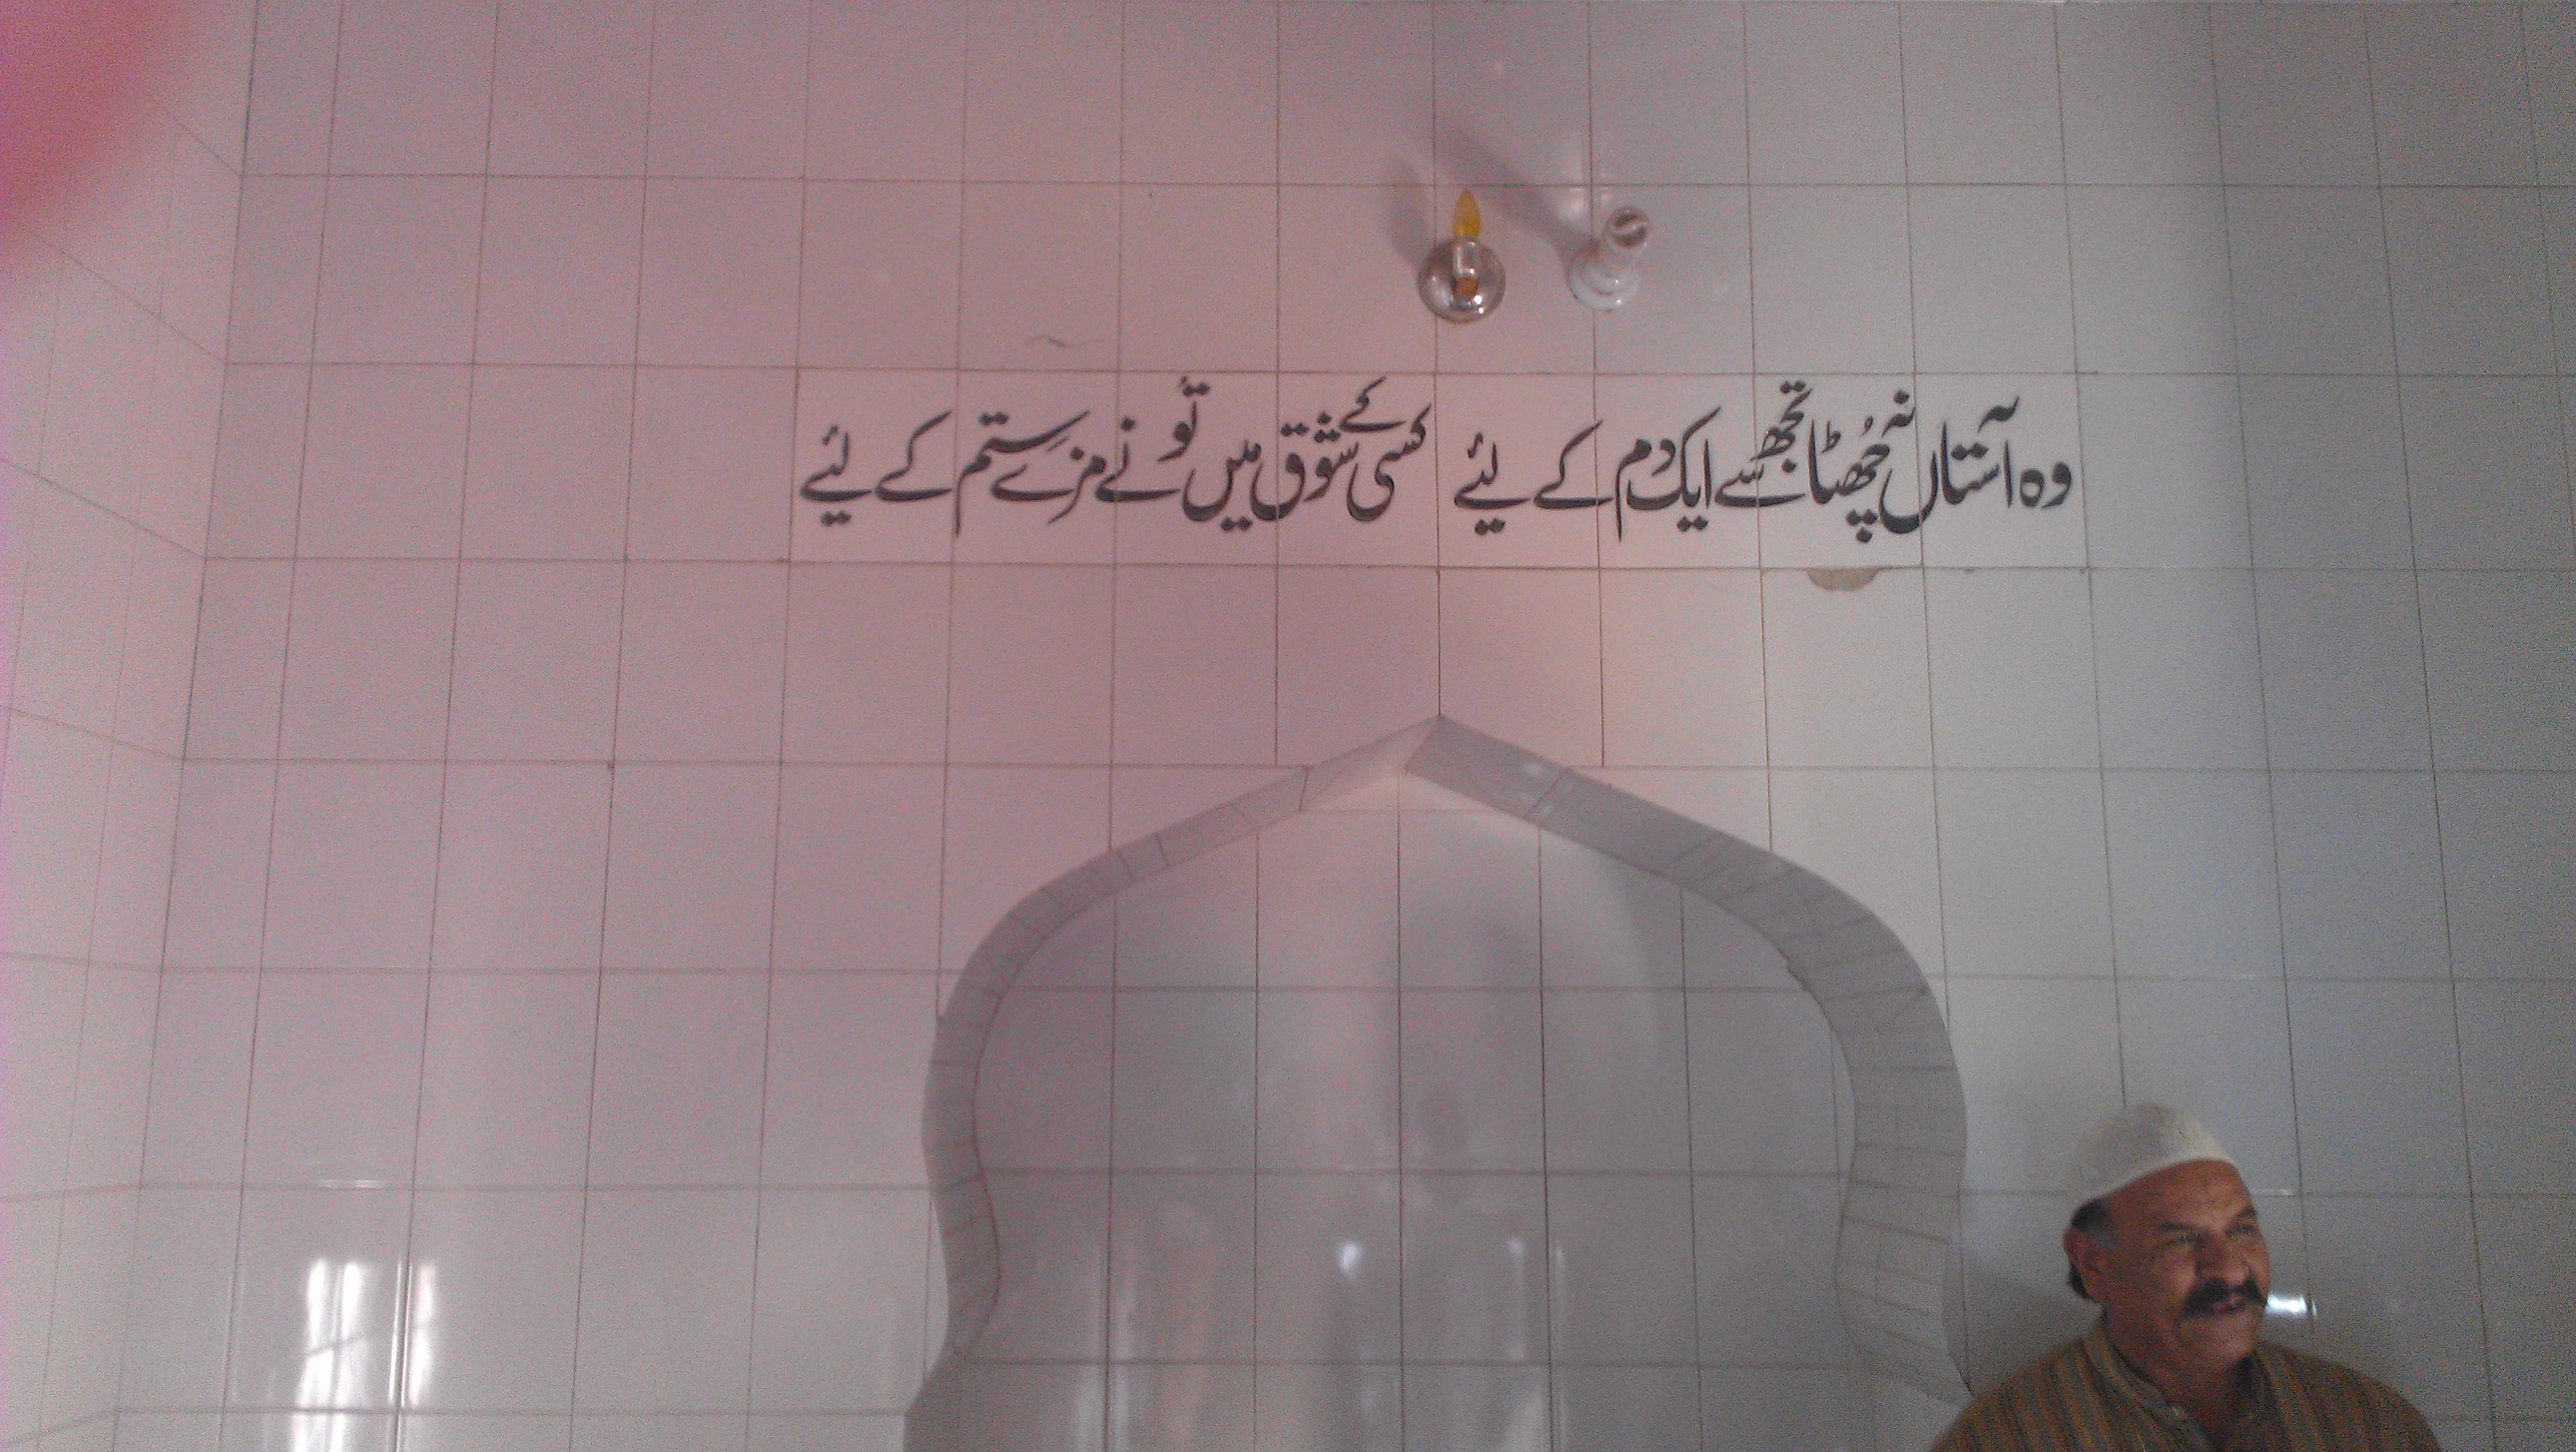 وہ آستاں نہ چُھٹا تجھ سے ایک دم کے لئے کسی کے شوق میں تُو نے مزے ستم کے لئے